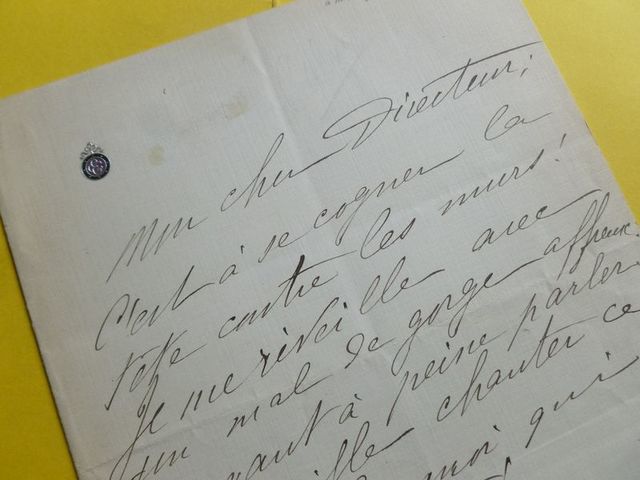 Mon cher Directeur,
C'est à se cogner la
tête contre les murs!
Je me réveille avec
un mal de gorge affreux
à peine parler
chanter ce
moi, qui